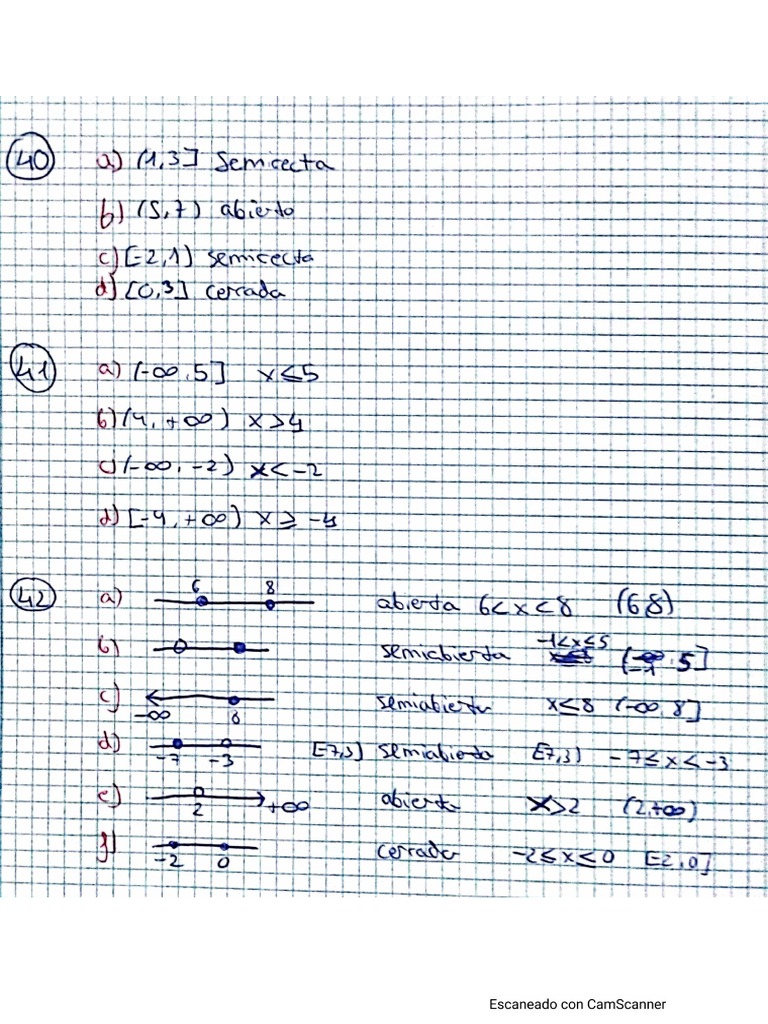 40 a) (1,3] Semirecta
b) (5,7) abierto
c) [-2,1) semirecta
d) [0,3] cerrada
41 a) (-∞,5] x≤5
b) (4, +∞) x>4
c) (-∞, -2) x<-2
d) [-4, +∞) x≥ -4
42 a) 6 8 abierta 6<x<8 (6 8)
b) semiabierta -1<x≤5 -1 5]
c) -∞ 8 semiabierta x≤8 (-∞ 8]
d) -7 -3 [-7,3) semiabierta [-7,3) -7≤x<-3
e) 2 +∞ abierta x>2 (2,+∞)
f) -2 0 cerrada -2≤x≤0 [-2,0]
Escaneado con CamScanner